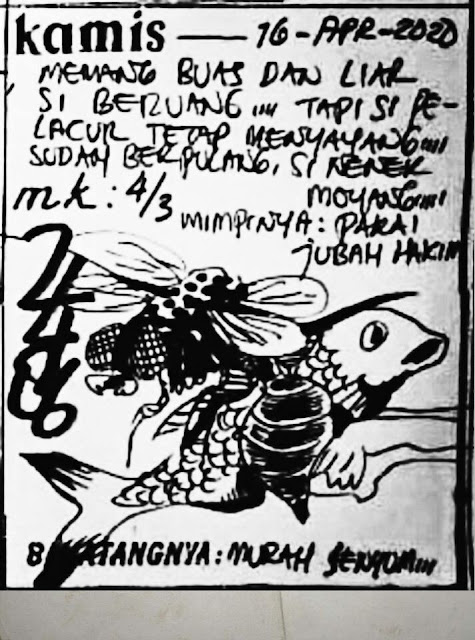 kamis — 16-APR-2020
MEMANG BUAS DAN LIAR
SI BERUANG,,,, TAPI SI PE-
LACUR TETAP MENYAYANG,,,,
SUDAH BERPULANG, SI NENEK
MOYANG,,,,
mk: 4/3
MIMPINYA: PAKAI
JUBAH HAKIM
BINATANGNYA: MURAH SENYUM,,,,